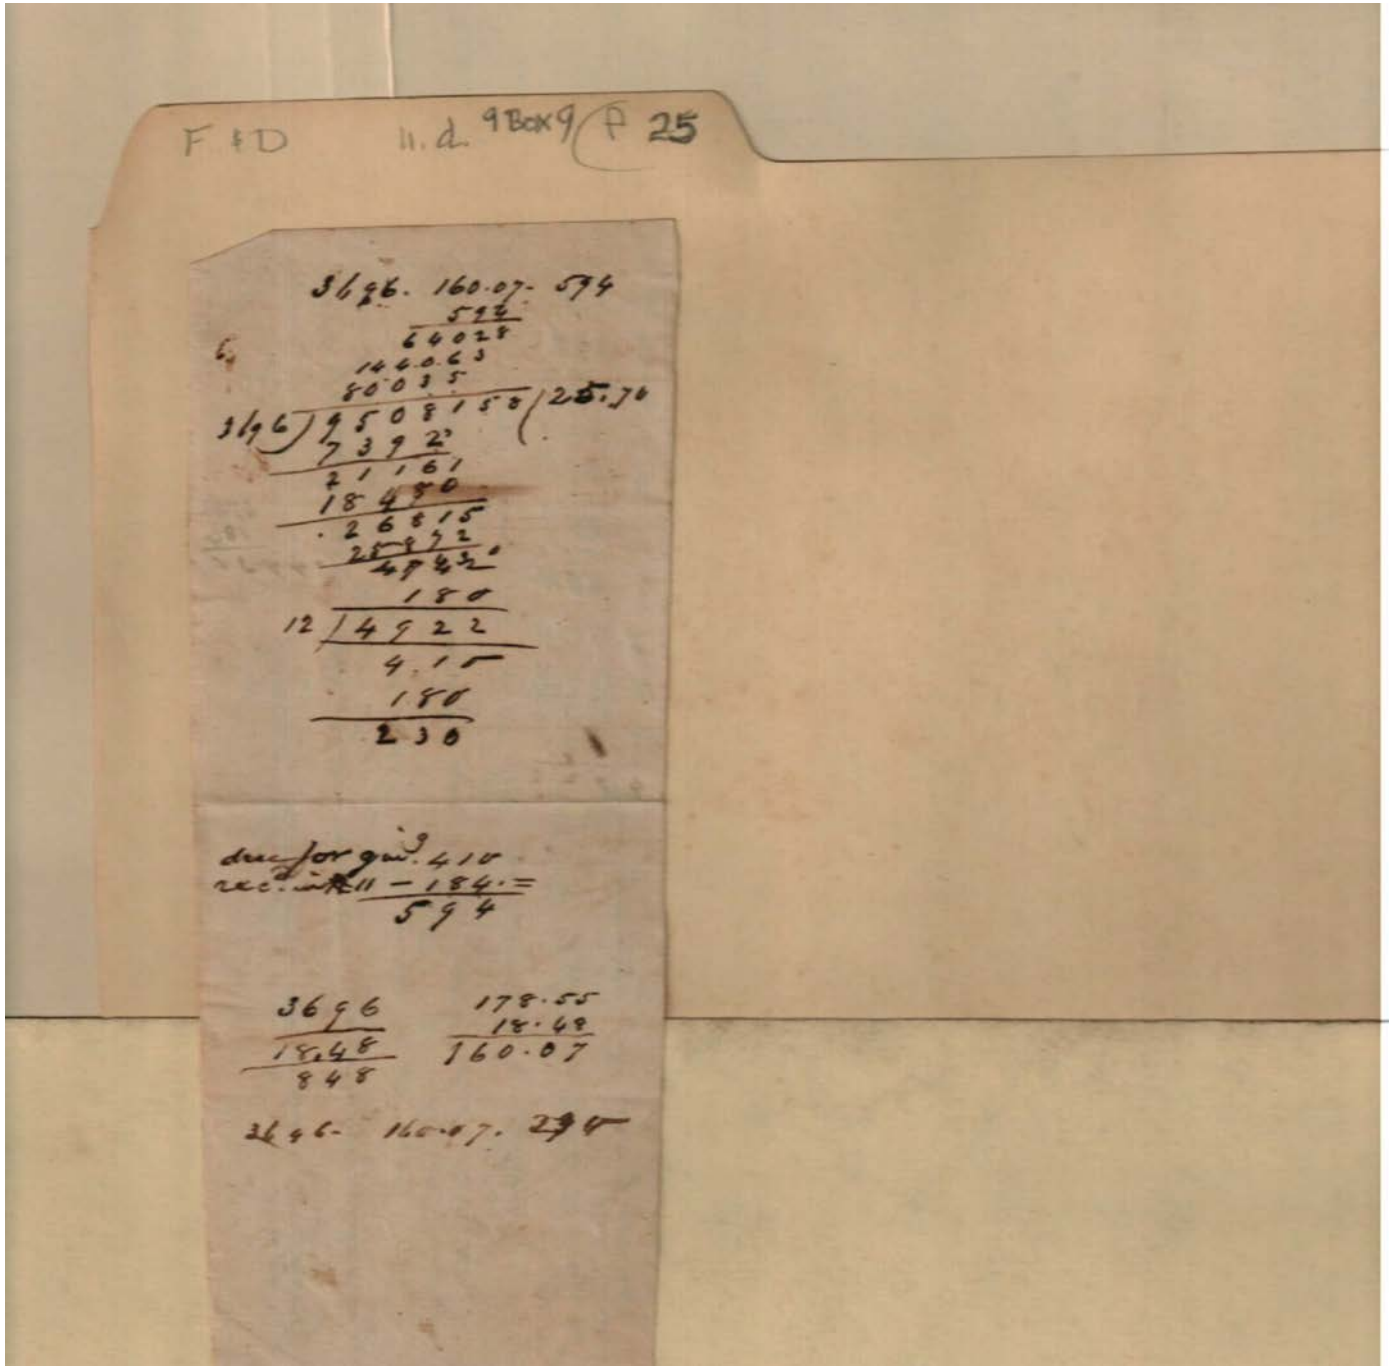 F & D n.d. 9 Box 9 P 25
3696. 160.07. 594
594
64028
6
144063
80035
3696 ) 9508158 ( 25.70
7392
21161
18480
.26815
25872
180
12 / 4922
4.10
180
230
due for 410
rec.d 11 - 184. =
594
3696 178.55
18.48 18.48
848 160.07
3696- 160.07.